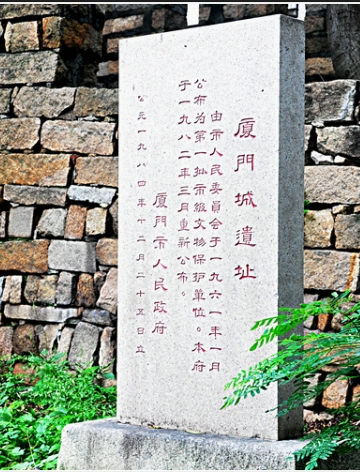 廈門城遺址
由市人民委員会于一九六一年一月
公布为第一批市級文物保护单位。本府
于一九八二年三月重新公布。
廈门市人民政府
公元一九八四年十二月二十五日立